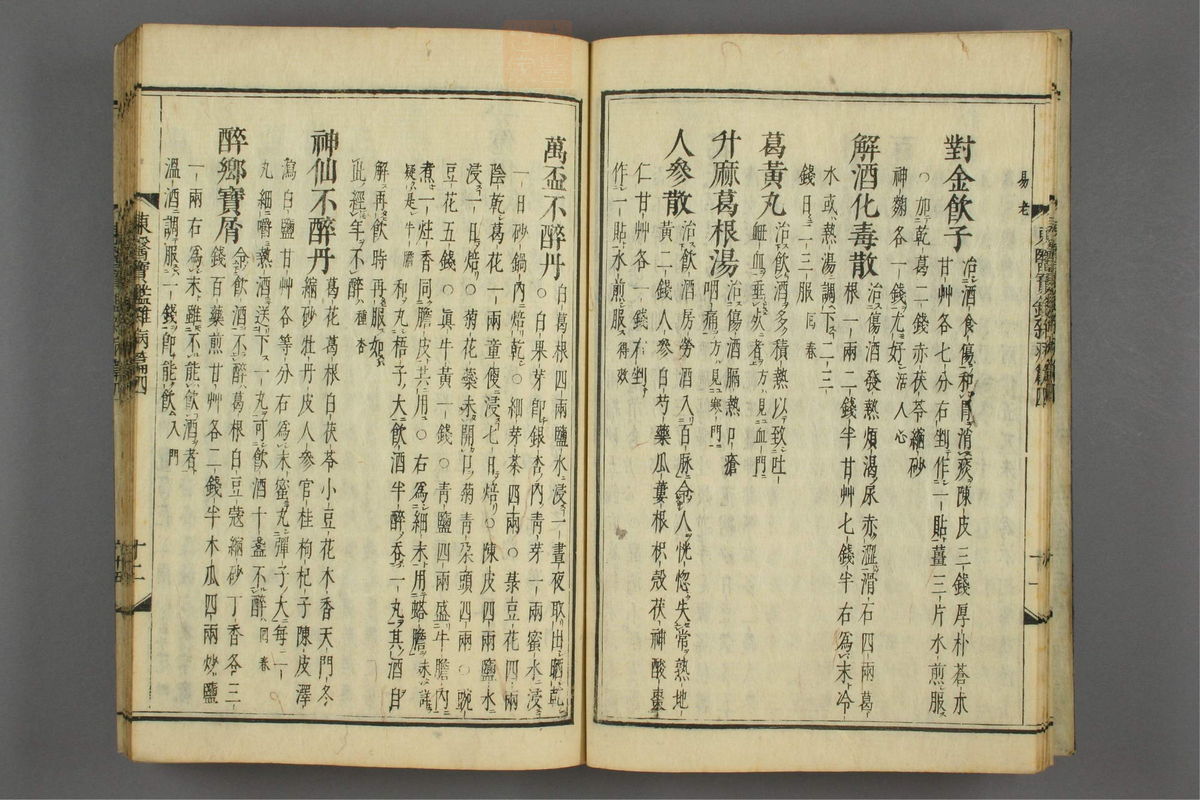 易老
對金飲子 治酒食傷和胃消痰陳皮三錢厚朴蒼朮
甘艸各七分右剉作一貼薑三片水煎服
○加乾葛二錢赤茯苓縮砂
神麴各一錢尤好 活人心
解酒化毒散 治傷酒發熱煩渴尿赤澁滑石四兩葛
根一兩二錢半甘艸七錢半右爲末冷
水或熱湯調下二三
錢日二三服 回春
葛黃丸 治飲酒多積熱以致吐
衄血垂死者 方見血門
升麻葛根湯 治傷酒膈熱口瘡
咽痛 方見寒門
人參散 治飲酒房勞酒入百脉令人恍惚失常熱地
黃二錢人參白芍藥瓜蔞根枳殼茯神酸棗
仁甘艸各一錢右剉
作一貼水煎服 得效
萬盃不醉丹 白葛根四兩鹽水浸一晝夜取出晒乾
○白果芽卽銀杏內靑芽一兩蜜水浸
一日砂鍋內焙乾○細芽茶四兩○菉豆花四兩
陰乾葛花一兩童便浸七日焙○陳皮四兩鹽水
浸一日焙○菊花蘂未開口菊靑朶頭四兩○豌
豆花五錢○眞牛黃一錢○靑鹽四兩盛牛膽內
煮一炷香同膽皮共用○右爲細末用蟠膽 未詳
疑是牛膽 和丸梧子大飲酒半醉吞一丸其酒自
解再飲時再服如
此經年不醉 種杏
神仙不醉丹 葛花葛根白茯苓小豆花木香天門冬
縮砂牡丹皮人參官桂枸杞子陳皮澤
瀉白鹽甘艸各等分右爲末蜜丸彈子大每一
丸細嚼熱酒送下一丸可飲酒十盞不醉 回春
醉鄕寶屑 令飲酒不醉葛根白豆蔲縮砂丁香各三
錢百藥煎甘艸各二錢半木瓜四兩炒鹽
一兩右爲末雖不能飲酒者
溫酒調服一錢卽能飲 入門
東醫寶鑑雜病篇四